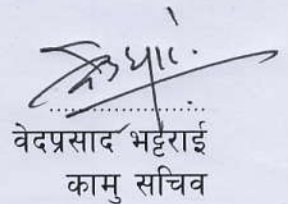 वेदप्रसाद भट्टराई
कामु सचिव